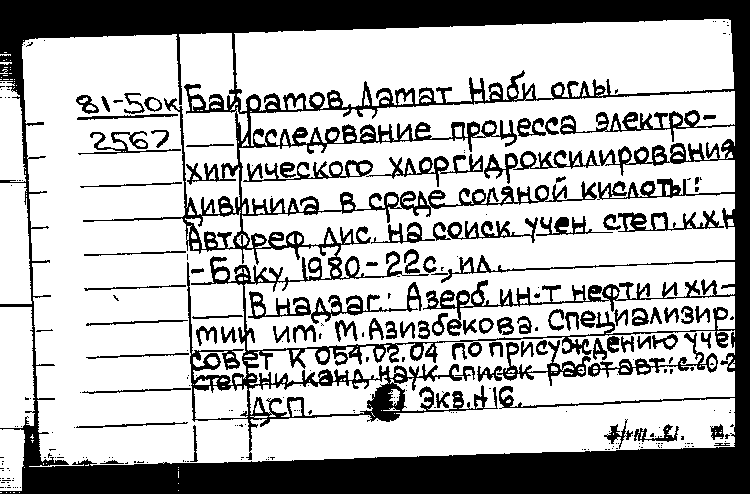 81-50к Байрамов, Дамат Наби оглы.
2567 Исследование процесса электро-
химического хлоргидроксилирования
дивинила в среде соляной кислоты:
Автореф. дис. на соиск. учен. степ. к.х.н
-Баку, 1980.-22с., ил.
В надзаг.: Азерб. ин-т нефти и хи-
мии им. М.Азизбекова. Специализир.
совет К 054.02.04 по присуждению учен
степени канд. наук. список работ авт.: с.20-2
ДСП. Экз.№16.